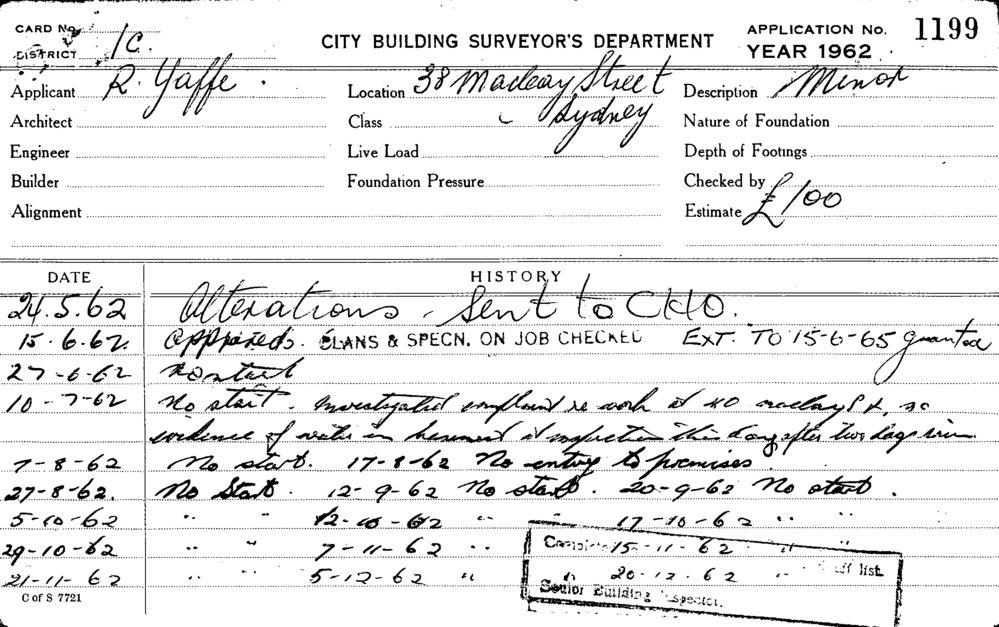 CARD No.
DISTRICT 1C.
CITY BUILDING SURVEYOR'S DEPARTMENT
APPLICATION No. 1199
YEAR 1962
Applicant R. Yaffe. Location 38 Macleay Street Description Minor
Architect Class Sydney Nature of Foundation
Engineer Live Load Depth of Footings
Builder Foundation Pressure Checked by
Alignment Estimate £100
DATE HISTORY
24.5.62 Alterations - Sent to CHO.
15.6.62. Approved. PLANS & SPECN. ON JOB CHECKED EXT. TO 15-6-65 granted
27-6-62 No start
10-7-62 No start. Investigated complaint re work at 40 Macleay St, no
evidence of water in basement at inspection this day after two days
7-8-62 No start. 17-8-62 No entry to premises.
27-8-62. No Start. 12-9-62 No start. 20-9-62 No start.
5-10-62 " " 12-10-62 " " 17-10-62 " "
29-10-62 " " 7-11-62 " " 15-11-62 " "
21-11-62 " " 5-12-62 " " 20-12-62 " list.
Senior Building Inspector.
C of S 7721